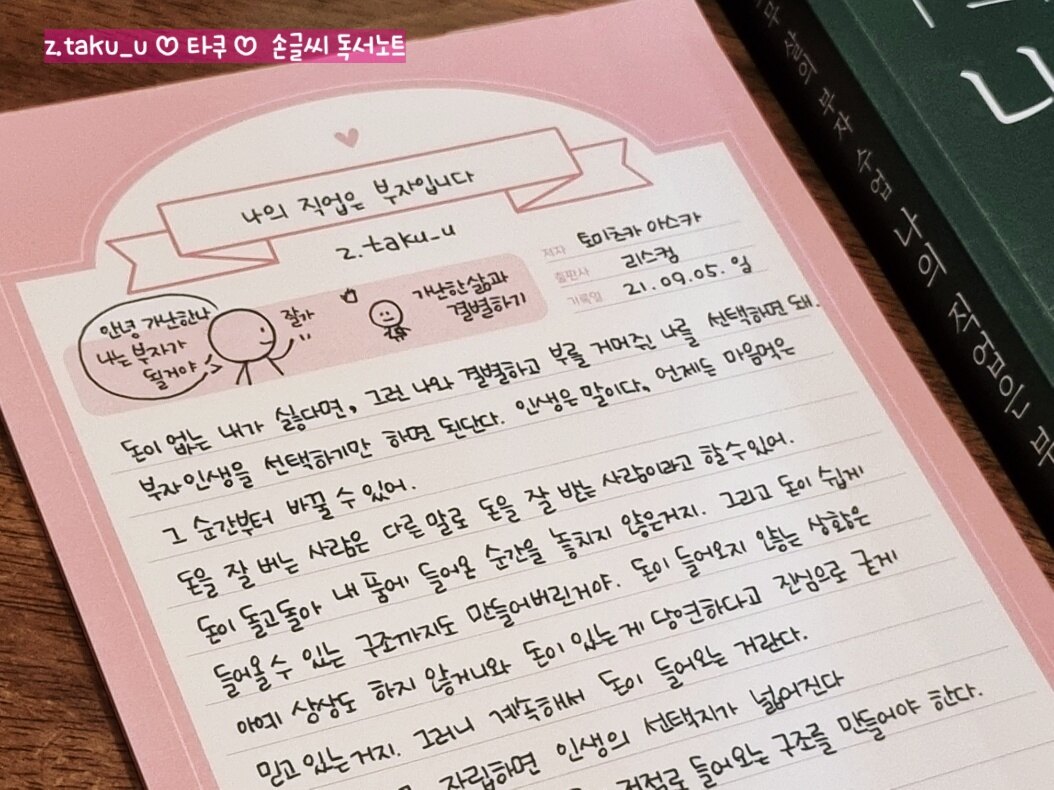 z.taku_u ♡ 타쿠 ♡ 손글씨 독서노트
나의 직업은 부자입니다
z.taku_u
저자 토미츠카 아스카
출판사 리스컴
기록일 21.09.05. 일
안녕 가난한나
나는 부자가
될거야
잘가
가난한 삶과
결별하기
돈이 없는 내가 싫다면, 그런 나와 결별하고 부를 거머쥔 나를 선택하면 돼.
부자인생을 선택하기만 하면 된단다. 인생은 말이다, 언제든 마음먹은
그 순간부터 바꿀 수 있어.
돈을 잘 버는 사람은 다른 말로 돈을 잘 받는 사람이라고 할 수 있어.
돈이 돌고돌아 내 품에 들어온 순간을 놓치지 않은거지. 그리고 돈이 쉽게
들어올 수 있는 구조까지도 만들어버린거야. 돈이 들어오지 않는 상황은
아예 상상도 하지 않거니와 돈이 있는 게 당연하다고 진심으로 굳게
믿고 있는거지. 그러니 계속해서 돈이 들어오는 거란다.
자립하면 인생의 선택지가 넓어진다
들어오는 구조를 만들어야 한다.
부자 수업 나의 직업은 부